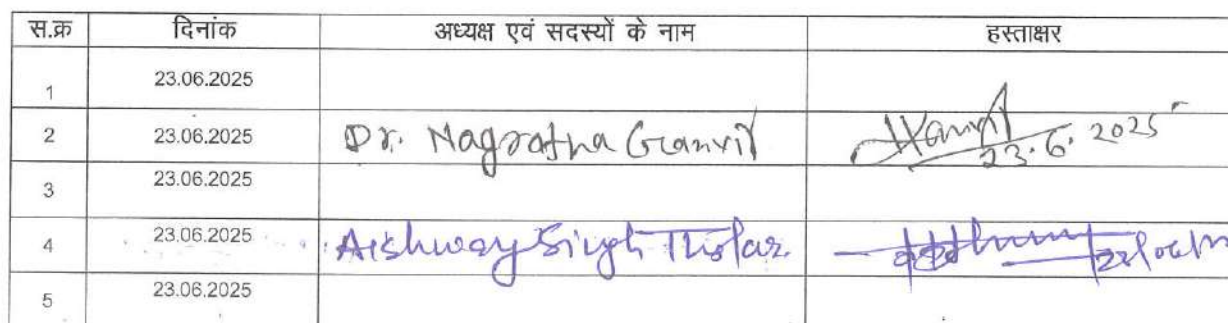 स.क्र दिनांक अध्यक्ष एवं सदस्यों के नाम हस्ताक्षर
1 23.06.2025
2 23.06.2025 Dr. Nagratna Ganvir 23.6.2025
3 23.06.2025
4 23.06.2025 Aishwary Singh
5 23.06.2025